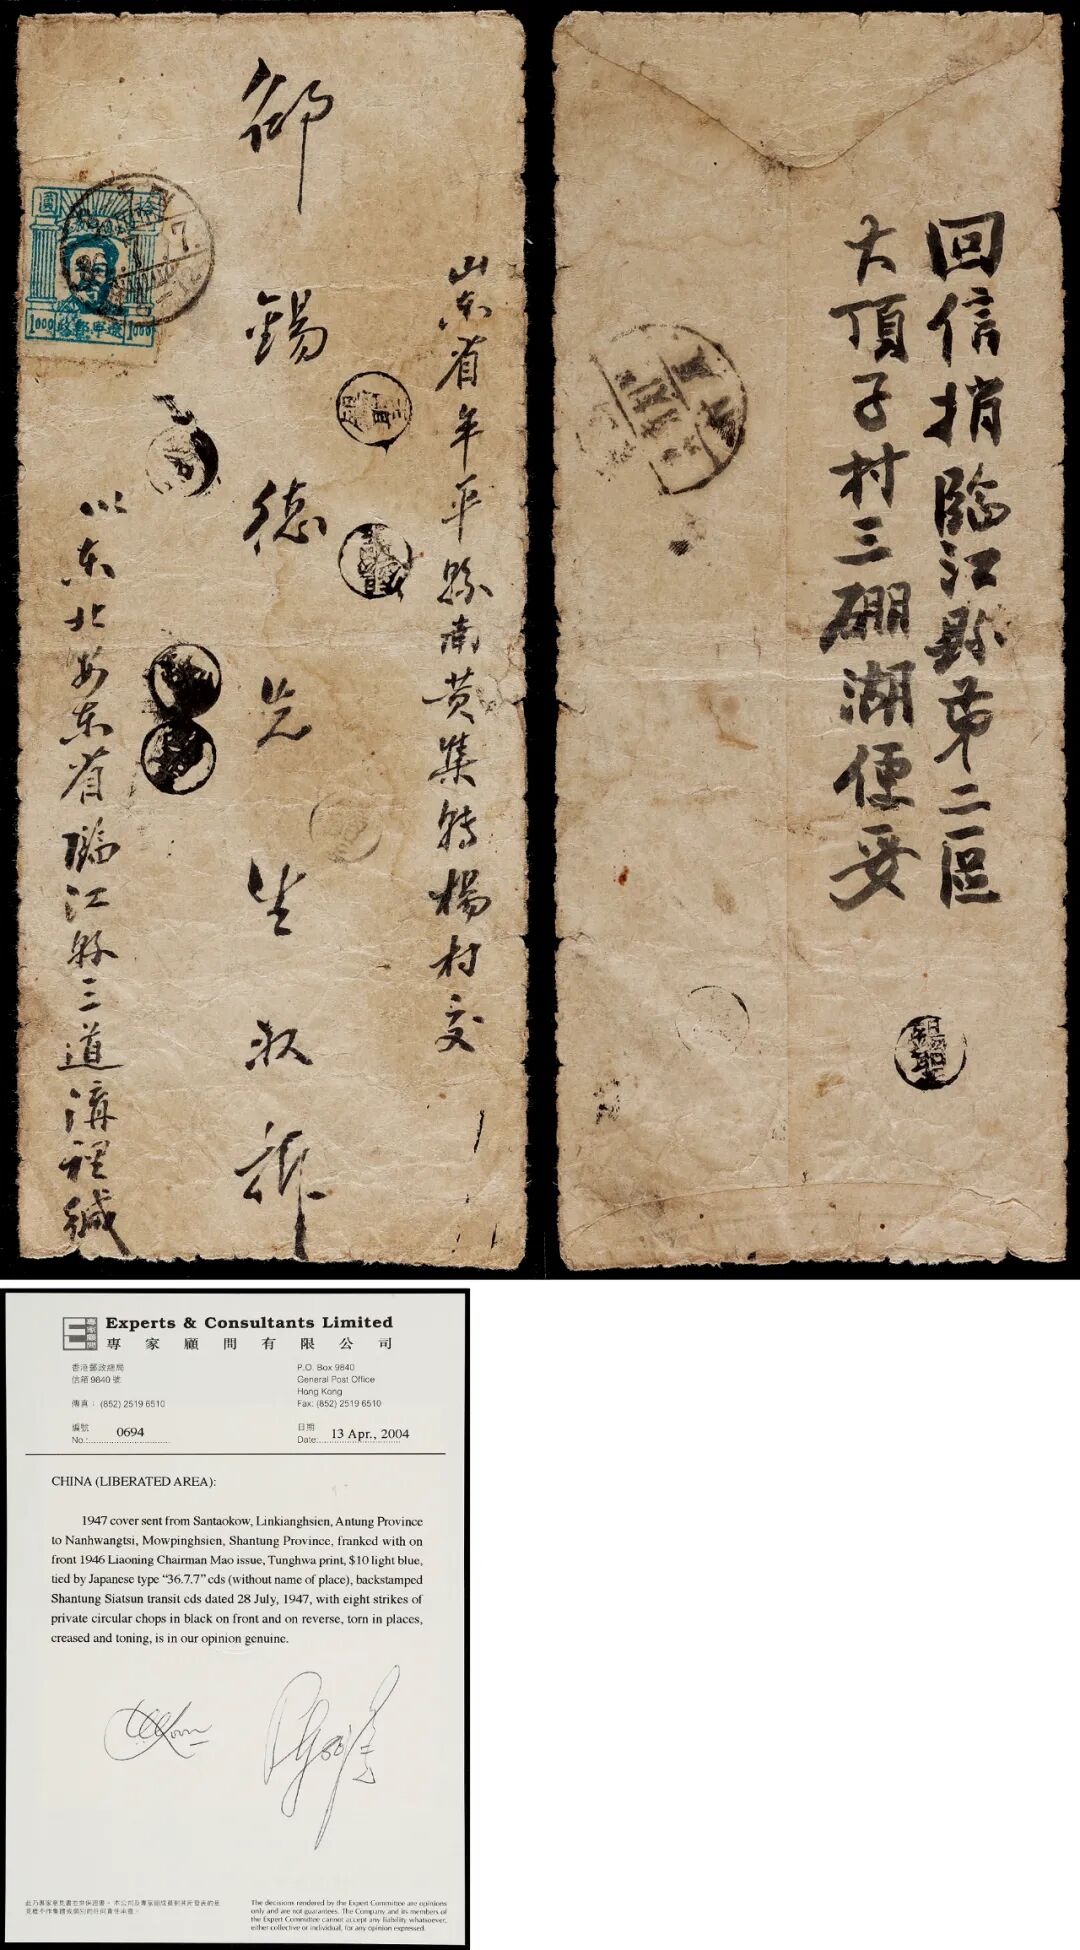 山东省牟平縣南黄集轉楊村交
邵錫德先生收
以东北安东省臨江縣三道溝裡緘
圓
1000
1000
7.
回信捎臨江縣第二區
大頂子村三硼湖便妥
Experts & Consultants Limited
專家顧問有限公司
香港郵政總局
信箱 9840 號
傳真： (852) 2519 6510
P.O. Box 9840
General Post Office
Hong Kong
Fax: (852) 2519 6510
編號
No.: 0694
日期
Date: 13 Apr., 2004
CHINA (LIBERATED AREA):
1947 cover sent from Santaokow, Linkianghsien, Antung Province
to Nanhwangtsi, Mowpinghsien, Shantung Province, franked with on
front 1946 Liaoning Chairman Mao issue, Tunghwa print, $10 light blue,
tied by Japanese type “36.7.7” cds (without name of place), backstamped
Shantung Siatsun transit cds dated 28 July, 1947, with eight strikes of
private circular chops in black on front and on reverse, torn in places,
creased and toning, is in our opinion genuine.
The decisions rendered by the Expert Committee are opinions
only and are not guarantees. The Company and its members of
the Expert Committee cannot accept any liability whatsoever,
either collective or individual, for any opinion expressed.